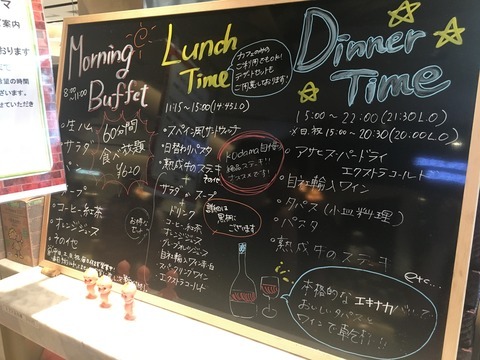 マ
ご案内
おります
Morning
Buffet
8:00〜11:00
・生ハム
サラダ
パン
スープ
・コーヒー紅茶
・オレンジジュース
・その他
60分間
食べ放題
Lunch
Time
11:15〜15:00(14:45LO)
カフェのみの
ご利用でもOK!
デザートセットも
ご用意しております!
・スペイン風サンドウィッチ
・日替わりパスタ
・熟成牛のステーキ
+
サラダ or スープ
+
ドリンク
コーヒー紅茶
オレンジジュース
グレープフルーツジュース
自社輸入ワイン赤・白
スパークリングワイン
エクストラコールド
Kodama自慢の
絶品ステーキ!!
オススメです!
詳細は
黒柄に
ございます
Dinner
Time
15:00〜22:00(21:30LO)
日.祝 15:00〜20:30(20:00LO)
・アサヒスーパードライ
エクストラコールド
・自社輸入ワイン
・タパス(小皿料理)
・パスタ
・熟成牛のステーキ
etc...
本格的なエキナカバルで
おいしいタパスと
ワインで乾杯!!